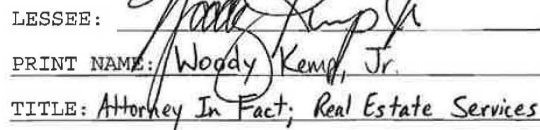 LESSEE: Woody Kemp Jr
PRINT NAME: Woody Kemp, Jr.
TITLE: Attorney In Fact; Real Estate Services